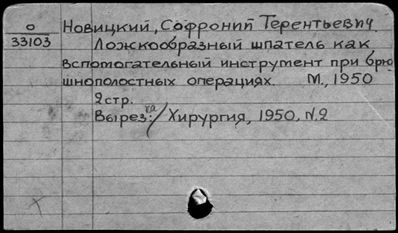 О
33103
Новицкий, Софроний Терентьевич.
Ложкообразный шпатель как
вспомогательный инструмент при брю
шнополостных операциях. М., 1950
2 стр.
Вырез: / Хирургия, 1950, N.2